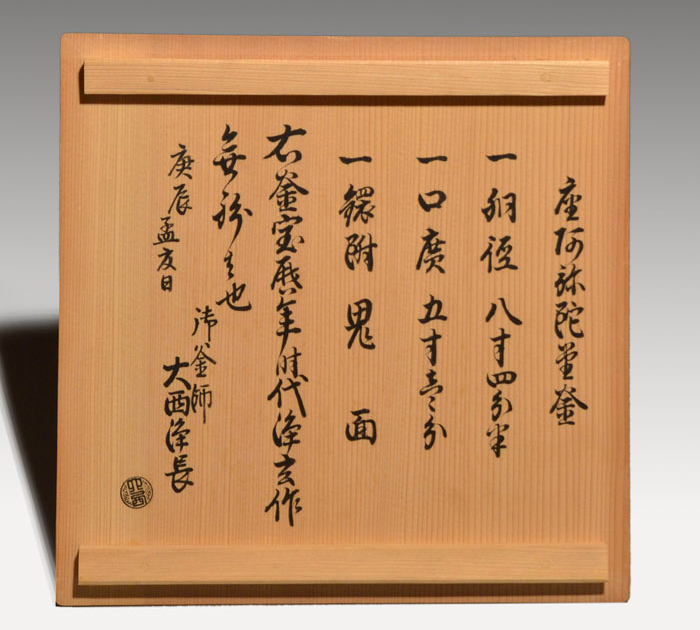 座阿弥陀堂釜
一 胴径 八寸四分半
一 口廣 五寸壱分
一 鐶附 鬼 面
右釜宝暦年時代浄玄作
無紛者也
庚辰孟夏日
御釜師
大西浄長